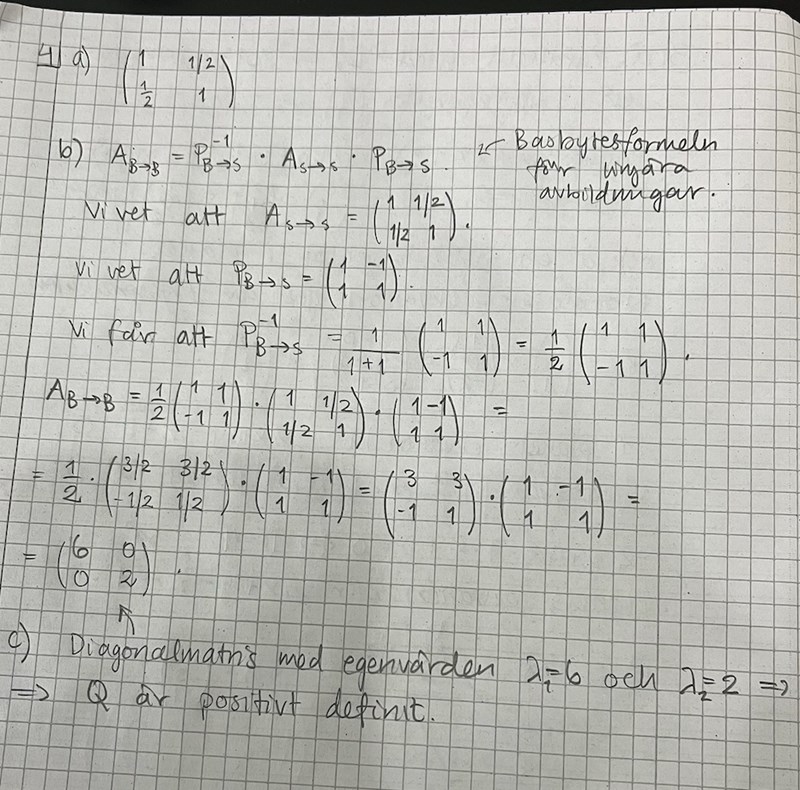 4) a) (1 1/2
1/2 1)
b) A_{B→B} = P_{B→S}^{-1} · A_{S→S} · P_{B→S}. ⇐ Basbytesformeln
för linjära
avbildningar.
Vi vet att A_{S→S} = (1 1/2
1/2 1).
Vi vet att P_{B→S} = (1 -1
1 1).
Vi får att P_{B→S}^{-1} = 1/(1+1) (1 1
-1 1) = 1/2 (1 1
-1 1).
A_{B→B} = 1/2 (1 1
-1 1) · (1 1/2
1/2 1) · (1 -1
1 1) =
= 1/2 · (3/2 3/2
-1/2 1/2) · (1 -1
1 1) = (3 3
-1 1) · (1 -1
1 1) =
= (6 0
0 2).
↑
c) Diagonalmatris med egenvärden λ₁=6 och λ₂=2 =>
=> Q är positivt definit.